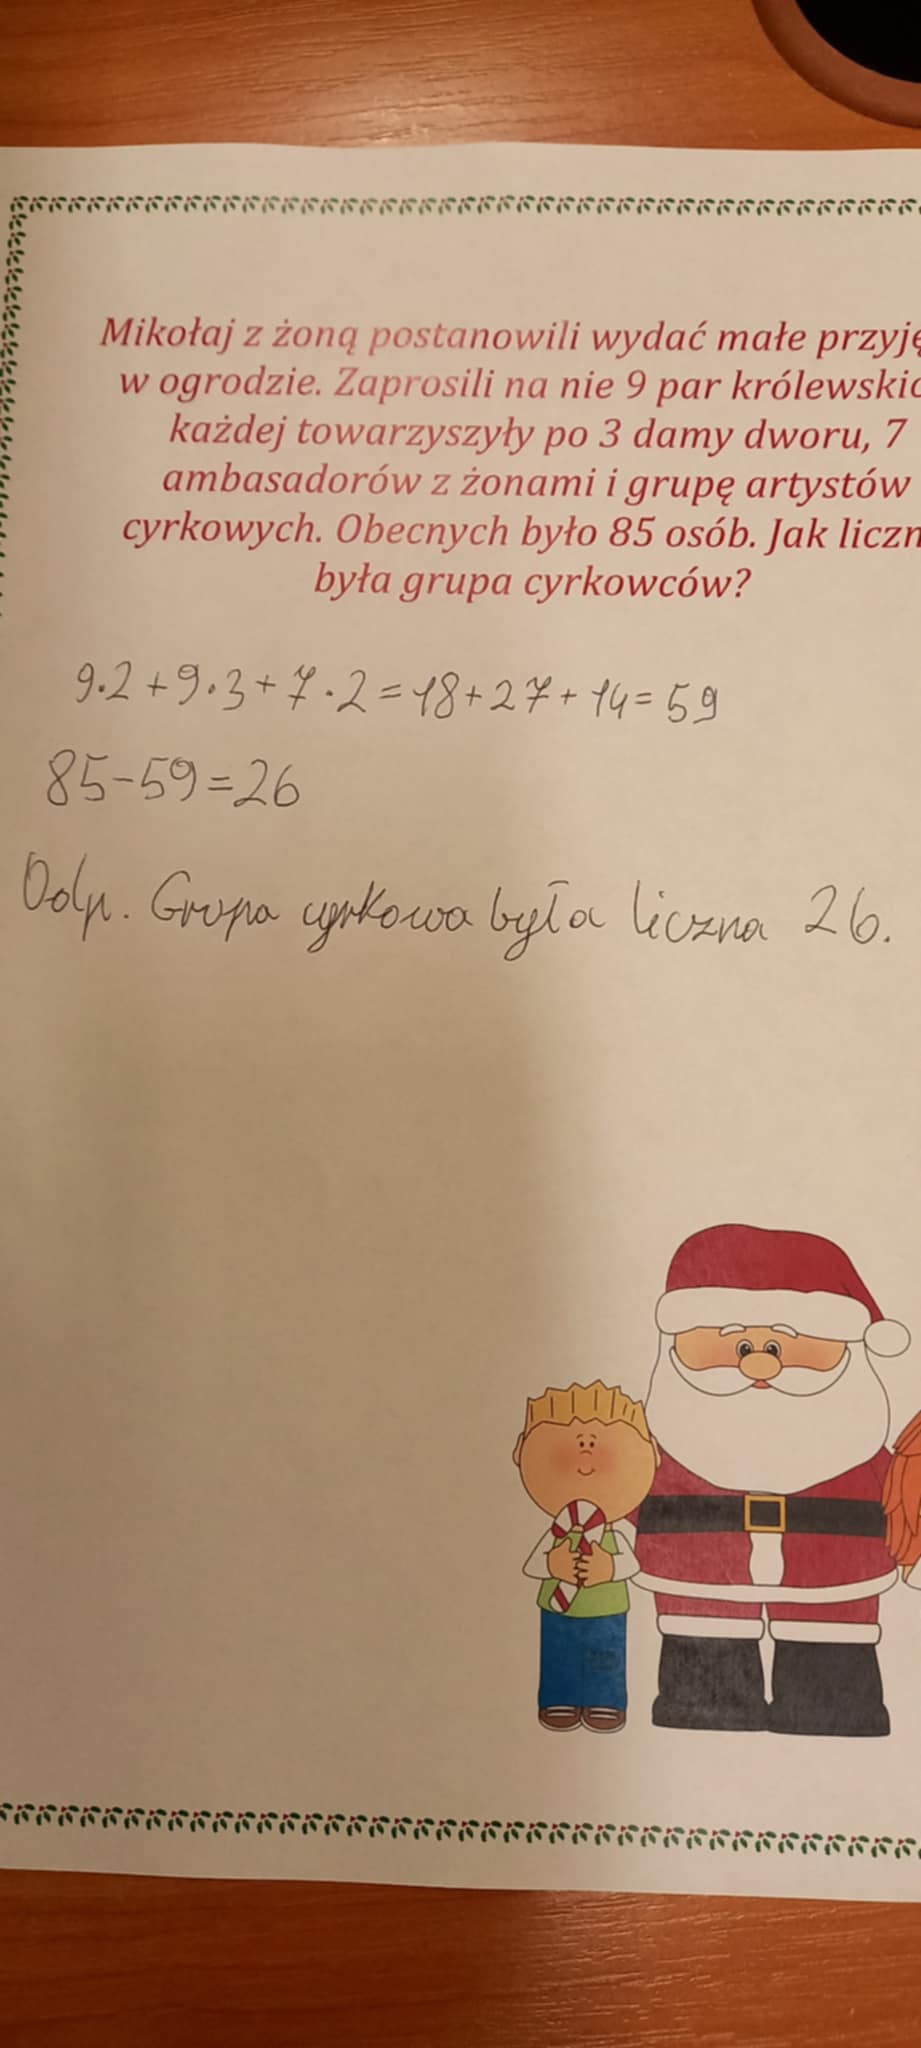 Mikołaj z żoną postanowili wydać małe przyję
w ogrodzie. Zaprosili na nie 9 par królewskic
każdej towarzyszyły po 3 damy dworu, 7
ambasadorów z żonami i grupę artystów
cyrkowych. Obecnych było 85 osób. Jak liczn
była grupa cyrkowców?
9·2+9·3+7·2=18+27+14=59
85-59=26
Odp. Grupa cyrkowa była liczna 26.